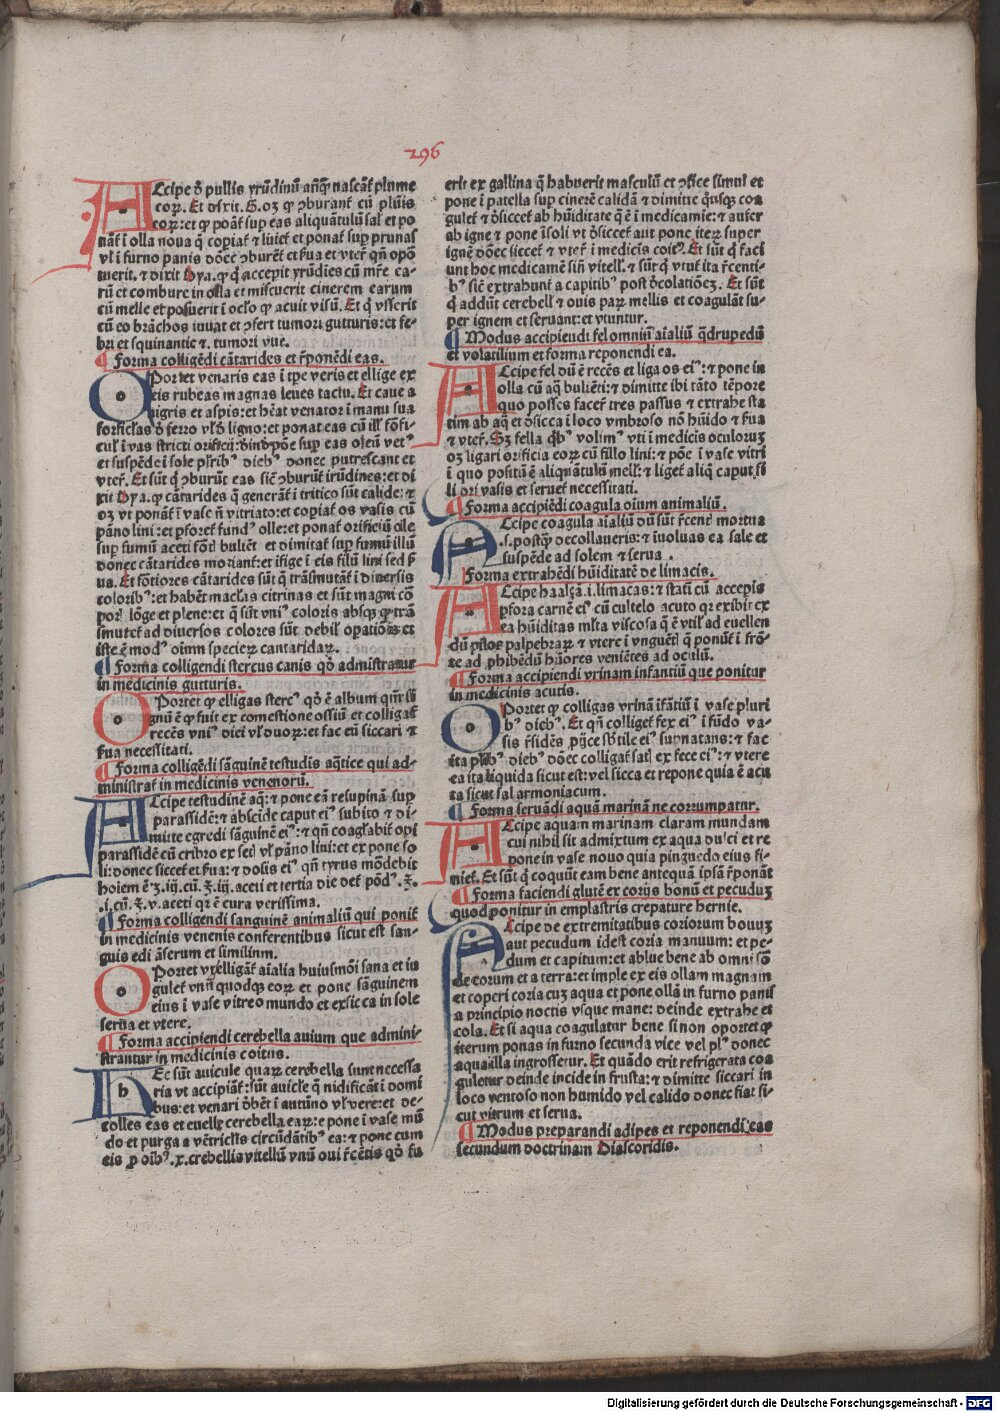 296
Accipe đ pullis yrūdinū añq̄ȝ nascāt̄ plume
eoꝝ. Et dixit. G. oȝ ꝙ ꝯburant̄ cū plūis
eoꝝ: et ꝙ poāt̄ sup eas aliquātulū sal̄ et po
nāt̄ i olla noua q̄ copiat̄ ⁊ luiet̄ et ponat̄ sup prunas
vl̄ i furno panis dōec ꝯburēt̄ et s̄ua et vter̄ qn̄ opo
tuerit. ⁊ dixit Dya. ꝙ q̄ accepit yrūdies cū mr̄e ea-
rū et combure in olla et miscuerit cinerem earum
cū melle et posuerit i ocl'o ꝙ acuit visū. Et q̄ vsserit
cū eo brāchos iuuat et ꝯfert tumori gutturis: et fe-
bri et squinantie ⁊. tumori vue.
¶ Forma colligēdi cātarides et r̄ponēdi eas.
Oportet venaris eas i tpe veris et ellige ex
eis rubeas magnas leues tactu. Et caue a
nigris et aspis: et hēat venator i manu sua
forficl'as đ ferro vl̄ đ ligno: et ponat eas cū ill' fōfi-
cul' i vas stricti orificii: dīnđ pōe sup eas oleū vetꝰ
et suspēde i sole plribꝰ diebꝰ donec putrescant et
vter̄. Et sūt q̄ ꝯburūt eas sic̄ ꝯburūt irūdines: et di
xit Dya. ꝙ cātarides q̄ generāt̄ i tritico sūt calide: ⁊
oȝ vt ponāt̄ i vase n̄ vitriato: et copiat̄ os vasis cū
pāno lini: et ꝑforet̄ fundꝰ olle: et ponat̄ orificiū olle
sup fumū aceti fōr̄ buliēt̄ et dimitat̄ sup fumū illū
donec cātarides moriant̄: et ifige i eis filū lini sed s̄
ua. Et fōtiores cātarides sūt q̄ trāsmutāt̄ i diuersis
coloribꝰ: et habēt mac'las citrinas et sūt magni cō
por̄ lōge et plene: et q̄ sūt vniꝰ coloris absqȝ ꝙ trā
smutet̄ ad diuersos colores sūt debil̄ opatiōis et
iste ē modꝰ oim specieꝝ cantaridaꝝ.
¶ Forma colligendi stercus canis qđ admistratur
in medicinis gutturis.
Oportet ꝙ elligas stercꝰ qđ ē album qm̄ si
gnū ē ꝙ fuit ex comestione ossiū et colligat̄
recēs vniꝰ diei vl̄ duoꝝ: et fac eū siccari ⁊
s̄ua necessitati.
¶ Forma colligēdi sāguinē testudis aq̄tice qui ad-
ministrat̄ in medicinis venenorū.
Accipe testudinē aq̄: ⁊ pone eā resupinā sup
parassidē: ⁊ abscide caput eiꝰ subito ⁊ di-
mitte egredi sāguinē eiꝰ: ⁊ qn̄ coagl'abit̄ opi
parassidē cū cribro ex set̄ vl̄ pāno lini: et ex pone so
li: donec siccet̄ et s̄ua: ⁊ dosis eiꝰ qn̄ tyrus mōdebit
hoiem ē ʒ. iij. cū. ʒ. iij. aceti et tertia die det̄ pōdꝰ. ʒ.
.i. cū. ʒ. v. aceti qꝛ ē cura verissima.
¶ Forma colligendi sanguinē animaliū qui ponit̄
in medicinis venenis conferentibus sicut est san-
guis edi āserum et similium.
Oportet vt elligāt̄ aialia huiusmōi sana et iu
gulet̄ vnū quodqȝ eoꝝ et pone sāguinem
eius i vase vitreo mundo et exsicca in sole
serua et vtere.
¶ Forma accipiendi cerebella auium que admini-
strantur in medicinis coitus.
Hec sūt auicule quaꝝ cerebella sunt necessa
ria vt accipiāt̄: sūt auicl'e q̄ nidificāt̄ i domi
bus: et venari đbēt̄ i autūno vl̄ vere: et de-
colles eas et euelle cerebella eaꝝ: e pone i vase mū
do et purga a vētric'lis circūdātibꝰ ea: ⁊ pone cum
eis ꝓ oībꝰ. x. crebellis vitellū vnū oui r̄cētis qđ fu
erit ex gallina q̄ habuerit masculū et ꝯfice simul et
pone i patella sup cinerē calidā ⁊ dimitte q̄usqȝ coa
gulet̄ ⁊ đsiccet̄ ab hūiditate q̄ ē i medicamie: ⁊ aufer
ab igne ⁊ pone i soli vt đsiccet̄ aut pone iteꝝ super
ignē dōec siccet̄ ⁊ vter̄ i medicis coitꝰ. Et sūt q̄ faci
unt hoc medicamē sin̄ vitell'. ⁊ sūt q̄ vtūt̄ ita r̄centi-
bꝰ sic̄ extrahunt̄ a capitibꝰ post đcolatiōeȝ. Et sūt
q̄ addūt cerebell' ⁊ ouis paꝝ mellis et coagulāt su-
per ignem et seruant: et vtuntur.
¶ Modus accipiendi fel omniū aialiū q̄drupedū
et volatilium et forma reponendi ea.
Accipe fel dū ē recēs et liga os eiꝰ: ⁊ pone in
olla cū aq̄ buliēti: ⁊ dimitte ibi tāto tēpore
quo posses facer̄ tres passus ⁊ extrahe sta
tim ab aq̄ et đsicca i loco vmbroso nō hūido ⁊ s̄ua
⁊ vter̄. Sȝ fella q̄bꝰ volimꝰ vti i medicis oculoruȝ
oȝ ligari orificia eoꝝ cū fillo lini: ⁊ pōe i vase vitri
i quo positū ē aliquātulū mell': ⁊ liget̄ aliq̄ caput si
li ori vasis et seruet̄ necessitati.
¶ Forma accipiēdi coagula oium animaliū.
Accipe coagula aialiū dū sūt r̄cent̄ mortua
.s. postq̄ȝ decollaueris: ⁊ iuoluas ea sale et
suspēde ad solem ⁊ serua.
Forma extrahēdi hūiditatē de limacis.
Accipe halzā. i. limacas: ⁊ statī cū acceꝑis
ꝑfora carnē eiꝰ cū cultelo acuto qꝛ exibit ex
ea hūiditas ml'ta viscosa q̄ ē vtil̄ ad euellen
dū pilos palpebraꝝ ⁊ vtere i vnguēt̄ q̄ ponūt̄ i frō-
te ad phibēdū hūores veniētes ad oculū.
¶ Forma accipiendi vrinam infantiū que ponitur
in medicinis acutis.
Oportet ꝙ colligas vrinā īfātiū i vase pluri
bꝰ diebꝰ. Et qn̄ colliget̄ fex eiꝰ i fūdo va-
sis r̄sidēs ꝓijce sb̄tile eiꝰ supnatans: ⁊ fac
ita plibꝰ diebꝰ dōec colligat̄ satꝭ ex fece eiꝰ: ⁊ vtere
ea ita liquida sicut est: vel sicca et repone quia ē acu
ta sicut sal armoniacum.
¶ Forma seruādi aquam marinā ne corrumpatur.
Accipe aquam marinam claram mundam
cui nihil sit admixtum ex aqua dulci et re
pone in vase nouo quia pinguedo eius fi-
niet̄. Et sūt q̄ coquūt eam bene antequā ipsā r̄ponāt
¶ Forma faciendi glutē ex corijs bonū et pecuduȝ
quod ponitur in emplastris crepature hernie.
Accipe de extremitatibus coriorum bouuȝ
aut pecudum idest coria manuum: et pe-
dum et capitum: et ablue bene ab omni sō
de eorum et a terra: et imple ex eis ollam magnam
et coperi coria cuȝ aqua et pone ollā in furno panis
a principio noctis vsque mane: deinde extrahe et
cola. Et si aqua coagulatur bene si non oportet ꝙ
iterum ponas in furno secunda vice vel plꝰ donec
aqua illa ingrossetur. Et quādo erit refrigerata coa
guletur deinde incide in frusta: ⁊ dimitte siccari in
loco ventoso non humido vel calido donec fiat si-
cut vitrum et serua.
¶ Modus preparandi adipes et reponendi eas
secundum doctrinam Diascoridis.
Digitalisierung gefördert durch die Deutsche Forschungsgemeinschaft - DFG